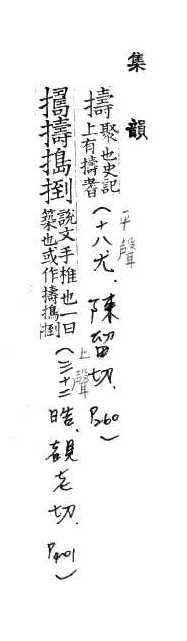 集韻
擣聚也史記
上有擣蓍
（十八尤．陳留切．P260）
平聲
擣搗捯說文手椎也一曰
築也或作擣搗捯
（三十二皓．覩老切．P401）
上聲